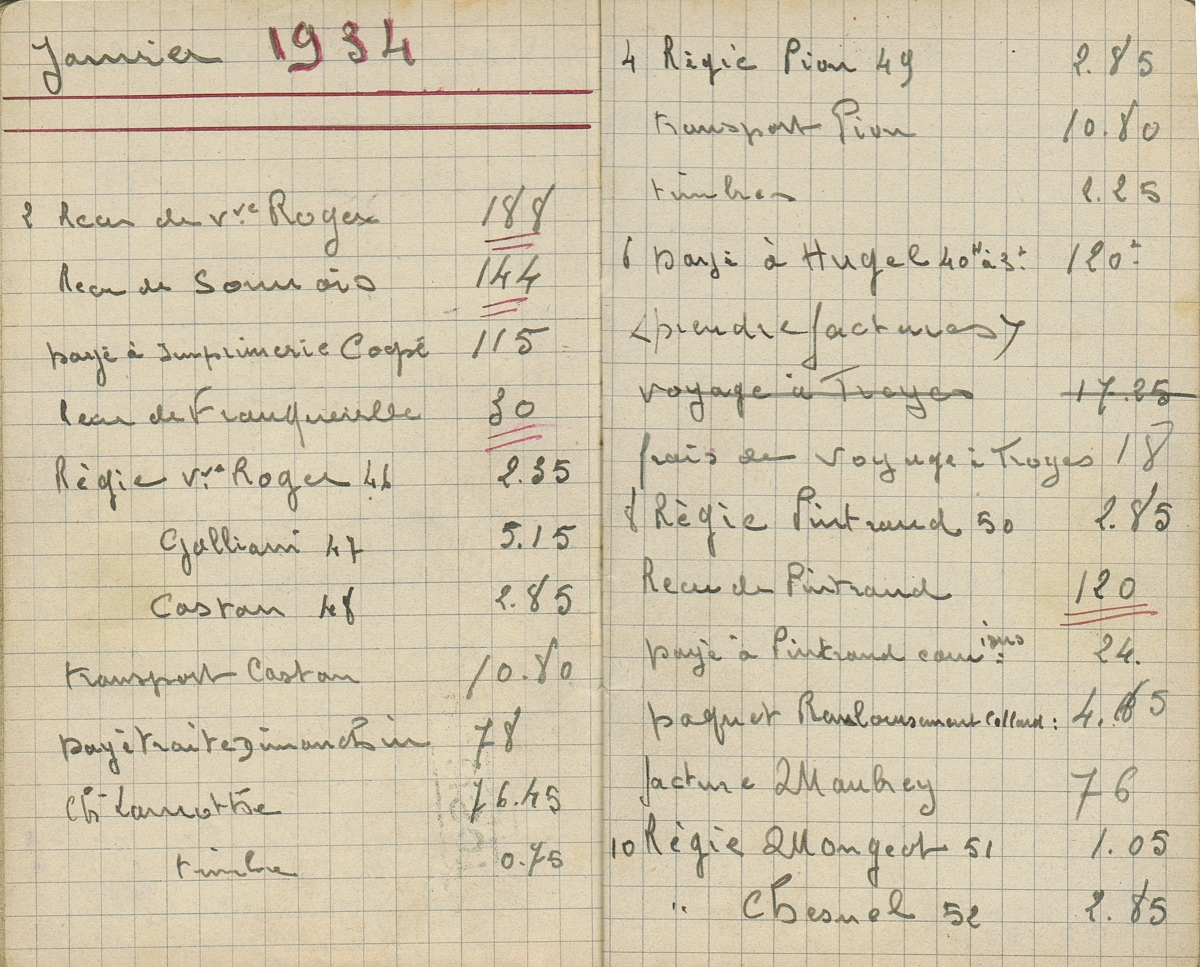 Janvier 1934
2 Reçu de Vve Roger 188
Reçu de Sommois 144
payé à Imprimerie Coopé 115
Reçu de Franqueville 30
Règie Vve Roger 46 2.35
Galliani 47 5.15
Castan 48 2.85
transport Castan 10.80
payé traite Dimanchin 78
Ch Lamotthe 76.45
timbre 0.75
4 Règie Pion 49 2.85
transport Pion 10.80
timbres 2.25
6 payé à Hugel 40H à 3f. 120f
<prendre factures>
voyage à Troyes 17.25
frais de voyage à Troyes 18
8 Règie Pintrand 50 2.85
Reçu de Pintrand 120
payé à Pintrand comions 24.
paquet Collard: 4.65
facture Maubrey 76
10 Règie Mongeot 51 1.05
" Chesnel 52 2.85